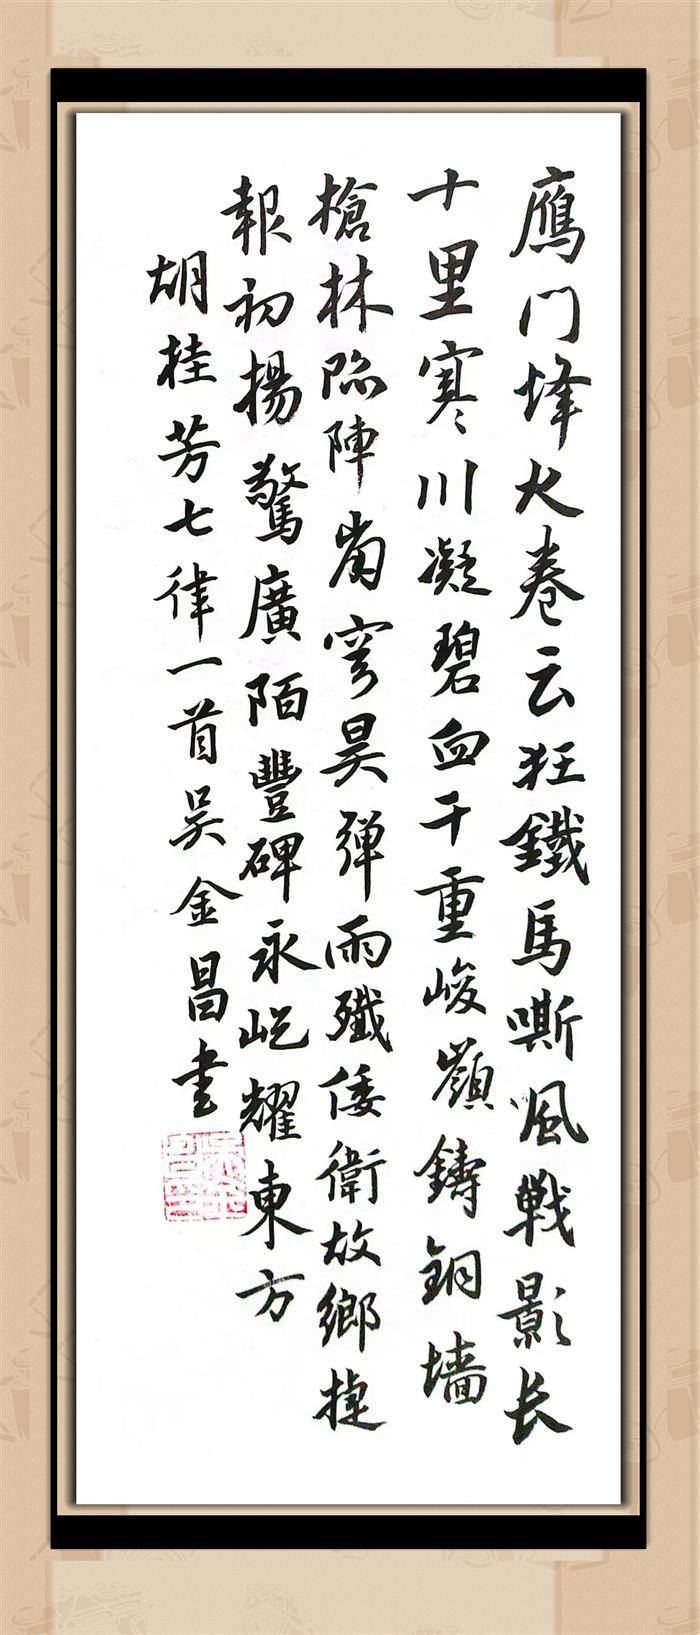 鴈门烽火卷云狂鐵馬嘶風戰影长
十里寒川凝碧血千重峻嶺鑄铜墙
槍林陷陣穹昊弹雨殲倭衛故鄉捷
報初揚驚廣陌豐碑永屹耀東方
胡桂芳七律一首吴金昌书